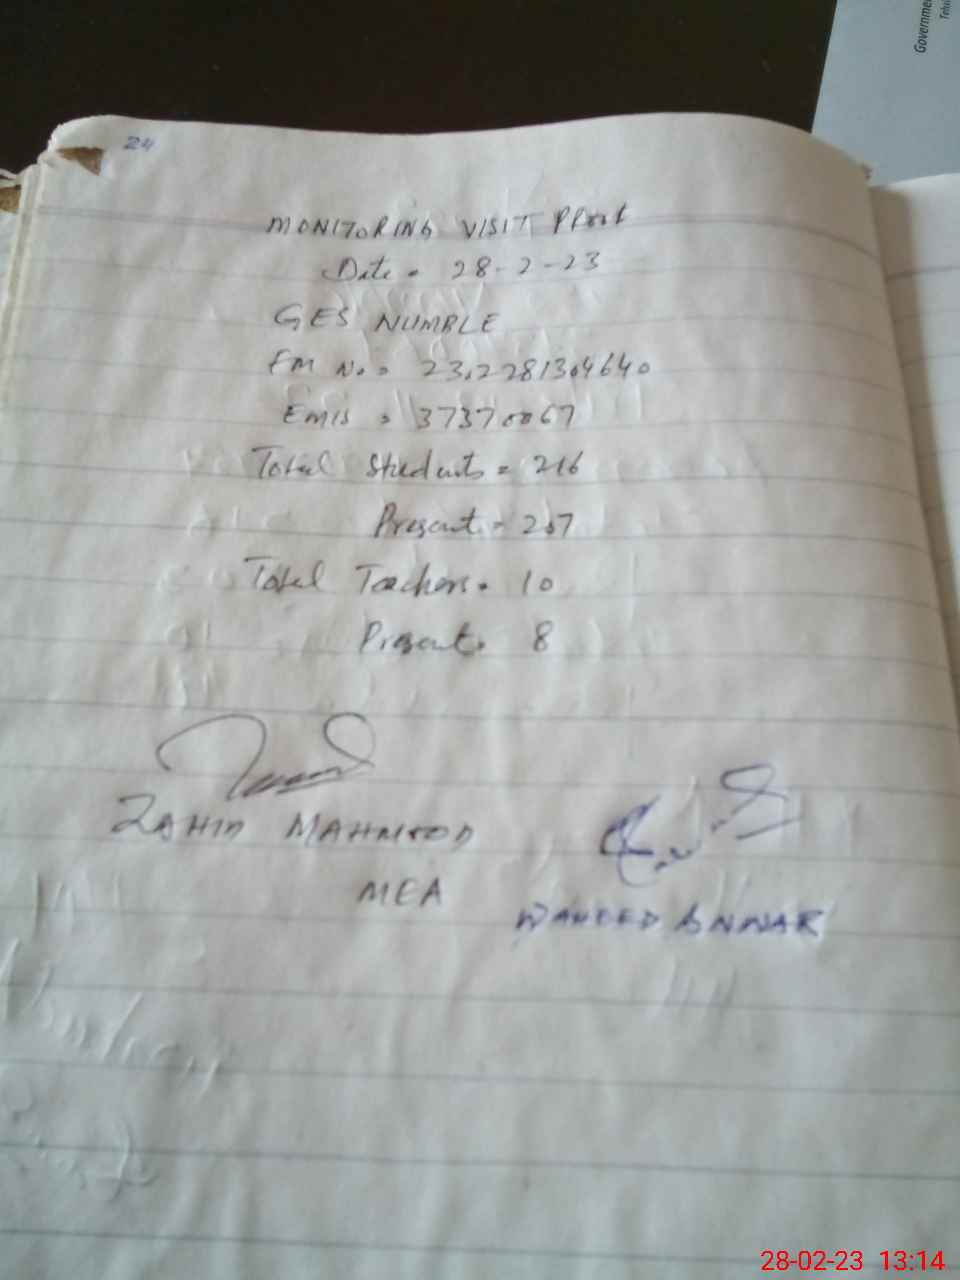 Government
Tehsi
24
MONITORING VISIT PROOF
Date = 28-2-23
GES NUMBLE
FM No. = 2302281304640
Emis = 37370067
Total Students = 216
Present = 207
Total Teachers = 10
Present = 8
ZAHID MAHMOOD
MEA
WAHEED ANWAR
28-02-23 13:14